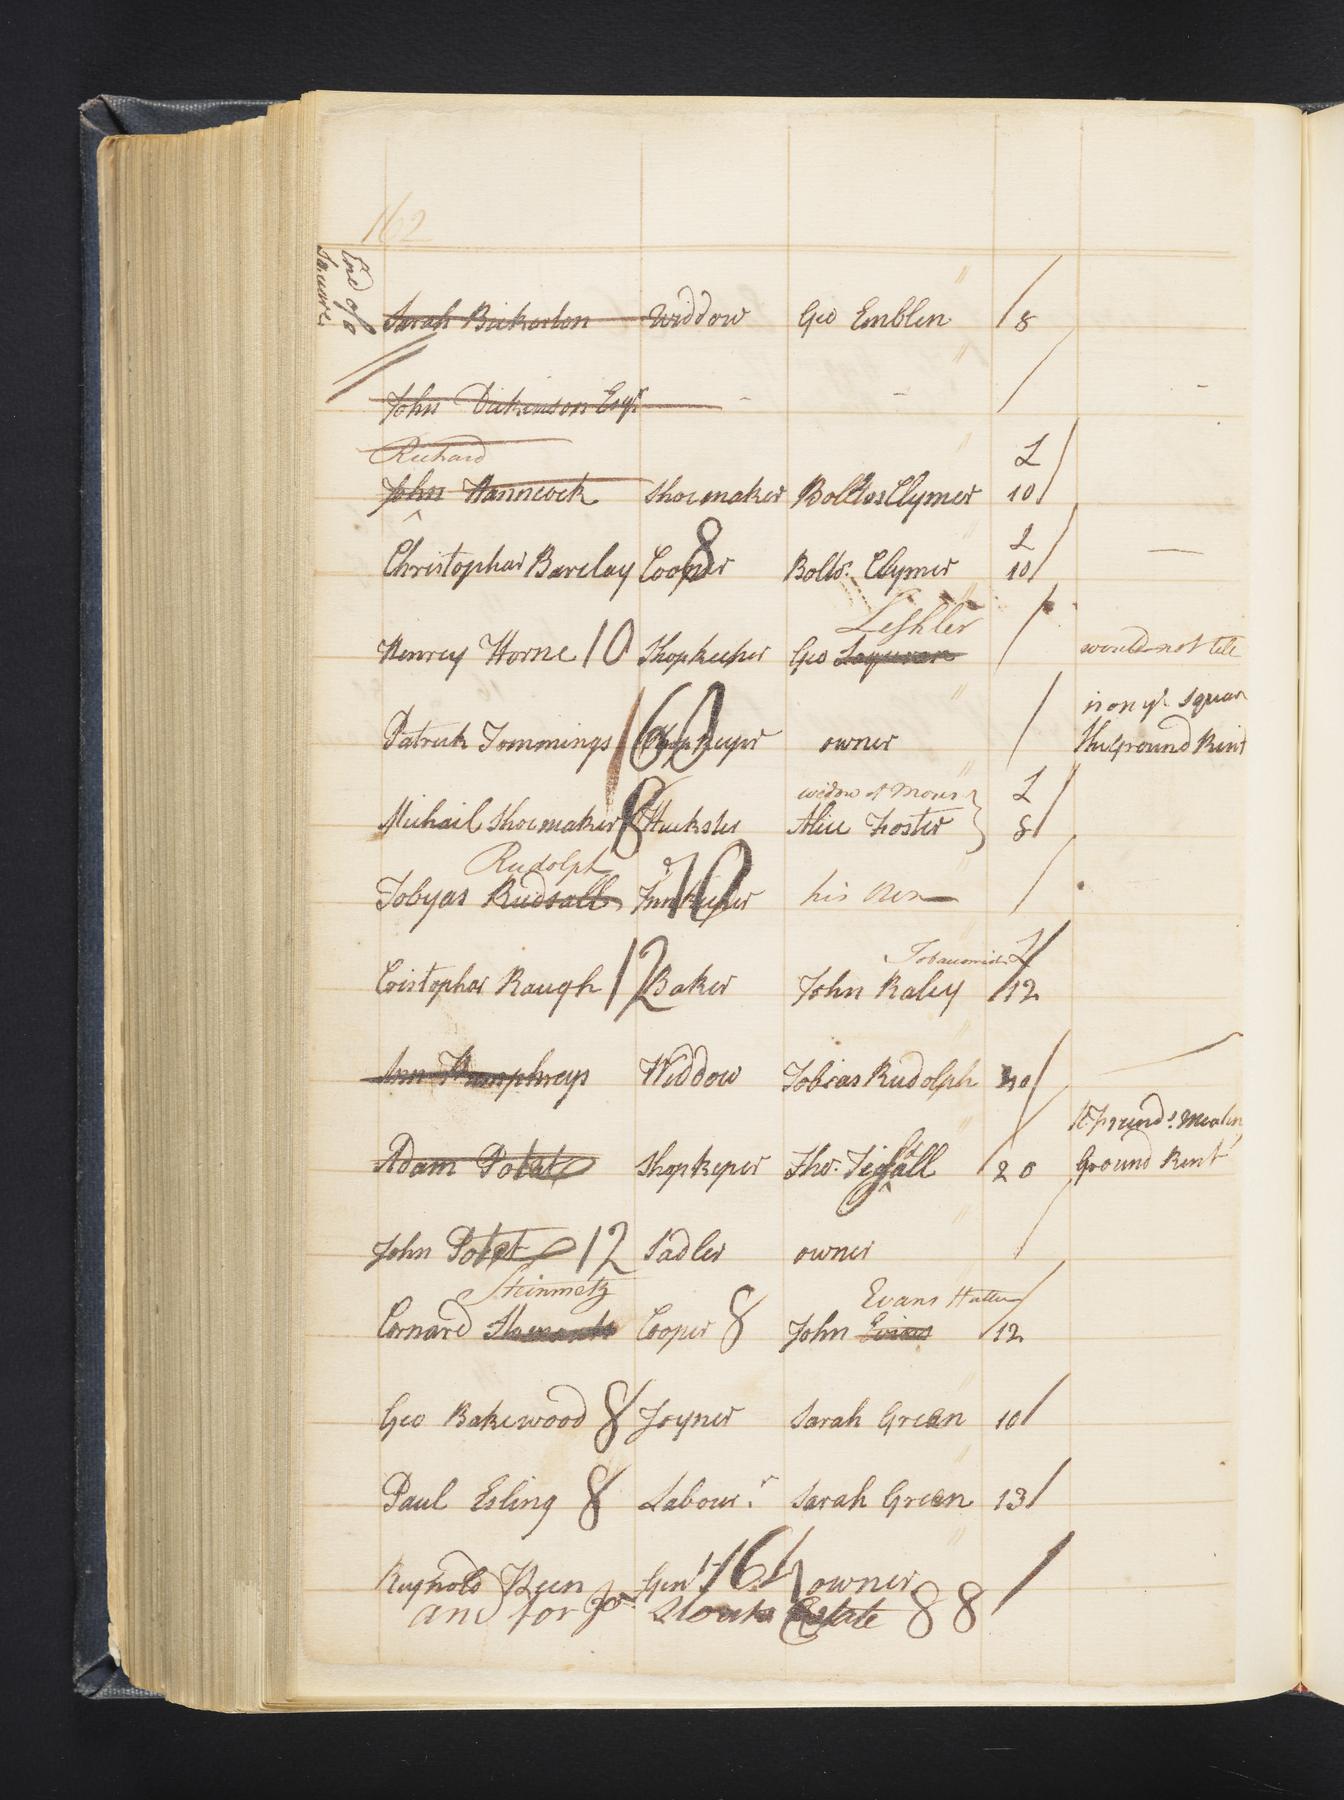 162
End of a
Square
Sarah Bickerton Widdow Geo Emblen 8
John Dickinson Esqr
Richard £
John Hanncock Shoemaker Bolltos Clymer 10
£
Christophar Barclay Cooper 8 Bolto: Clymer 10
Leshler
Henrey Horne 10 Shopkeeper Geo would not tell
is on ye squar
Patrick Tommings 60 Shopkeyer owner the Ground Rent
widow of Moses £
Michail Shoemaker 8 Huckster Alice Foster 8
Rudolph
Tobyas Rudsall Innkeper 10 his own
Tobacconist £
Cristophar Raugh 12 Baker John Raley 12
Ann Humphreys Widdow Tobias Rudolph 40
16 pounds Mealen
Adam Potat Shopkeper Tho: 20 Ground Rent
John Potat 12 Sadler owner
Steinmetz Evans Hatter
Cornard Cooper 8 John Evins 12
Geo Bakewood 8 Joyner Sarah Green 10
Paul Esling 8 Labourr Sarah Green 13
Reynold Keen Gent 164 owner
and for Jno Stouts Estate 88